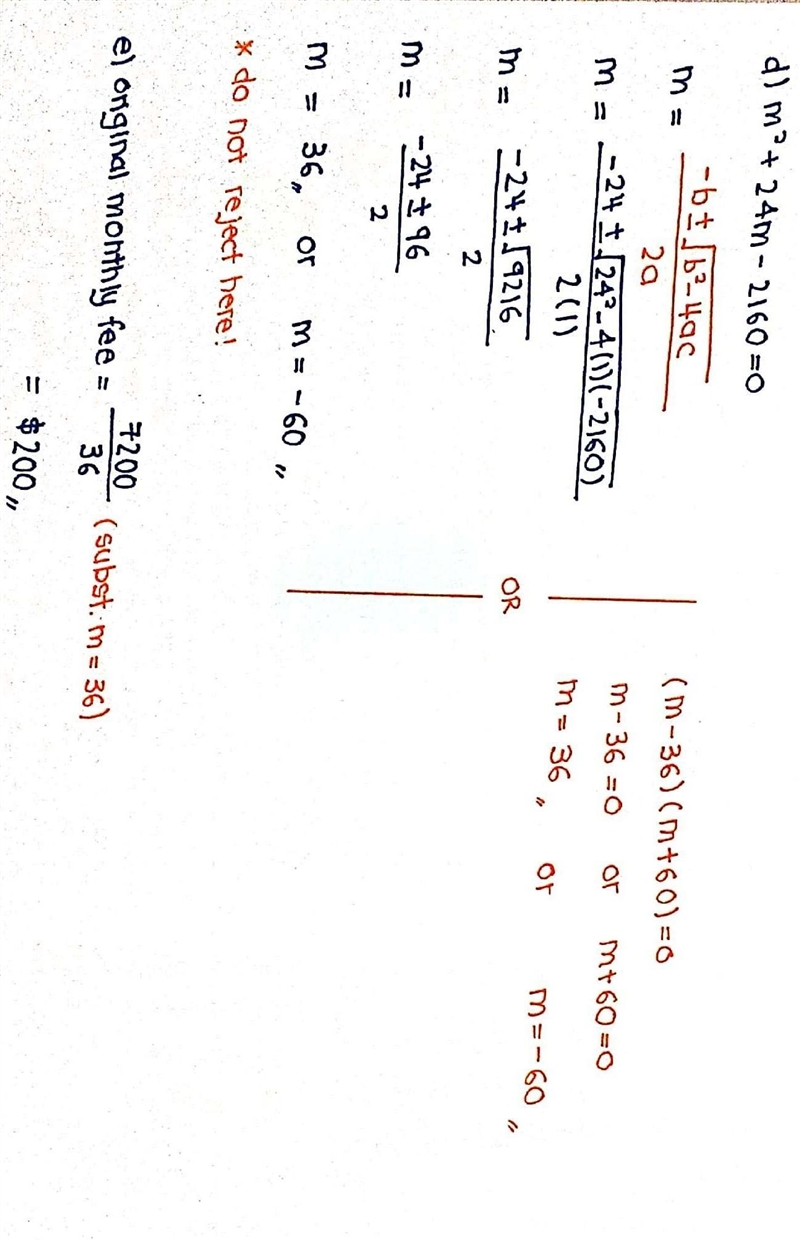 d) m² + 24m - 2160 = 0
m = -b ± √b² - 4ac / 2a
m = -24 ± √24² - 4(1)(-2160) / 2(1)
m = -24 ± √9216 / 2
m = -24 ± 96 / 2
m = 36,, or m = -60,,
* do not reject here!
OR
(m - 36)(m + 60) = 0
m - 36 = 0 or m + 60 = 0
m = 36,, or m = -60,,
e) original monthly fee = 7200 / 36 (subst. m = 36)
= $200,,